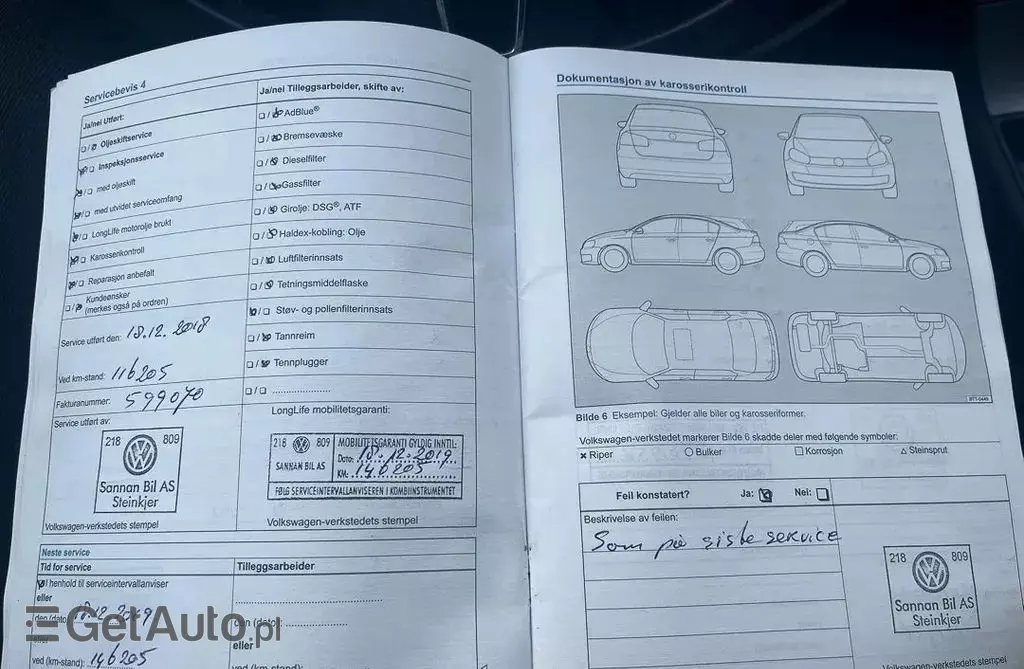 Servicebevis 4
Ja/nei Utført:
☐/☒ Oljeskiftservice
☒/☐ Inspeksjonsservice
☒/☐ med oljeskift
☒/☐ med utvidet serviceomfang
☒/☐ LongLife motorolje brukt
☒/☐ Karosserikontroll
☒/☐ Reparasjon anbefalt
☐/☒ Kundeønsker
(merkes også på ordren)
Service utført den: 18.12.2018
Ved km-stand: 116205
Fakturanummer: 599070
Service utført av:
218 809
Sannan Bil AS
Steinkjer
Volkswagen-verkstedets stempel
Ja/nei Tilleggsarbeider, skifte av:
☐/☒ AdBlue®
☐/☒ Bremsevæske
☐/☒ Dieselfilter
☐/☒ Gassfilter
☐/☒ Girolje: DSG®, ATF
☐/☒ Haldex-kobling: Olje
☐/☒ Luftfilterinnsats
☐/☒ Tetningsmiddelflaske
☒/☐ Støv- og pollenfilterinnsats
☐/☒ Tannreim
☐/☒ Tennplugger
☐/☐ ....................
LongLife mobilitetsgaranti:
218 809
SANNAN BIL AS
MOBILITETSGARANTI GYLDIG INNTIL:
Dato: 18.12.2019
KM: 146205
FØLG SERVICEINTERVALLANVISEREN I KOMBIINSTRUMENTET
Volkswagen-verkstedets stempel
Neste service
Tid for service
☒ I henhold til serviceintervallanviser
eller
den (dato) 18.12.2019
ved (km-stand): 146205
Tilleggsarbeider
den (dato):
eller
ved (km-stand):
GetAuto.pl
Dokumentasjon av karosserikontroll
BTT-0449
Bilde 6 Eksempel: Gjelder alle biler og karosseriformer.
Volkswagen-verkstedet markerer Bilde 6 skadde deler med følgende symboler:
× Riper ○ Bulker ☐ Korrosjon △ Steinsprut
Feil konstatert? Ja: ☒ Nei: ☐
Beskrivelse av feilen:
Som på siste service
218 809
Sannan Bil AS
Steinkjer
Volkswagen-verkstedets stempel